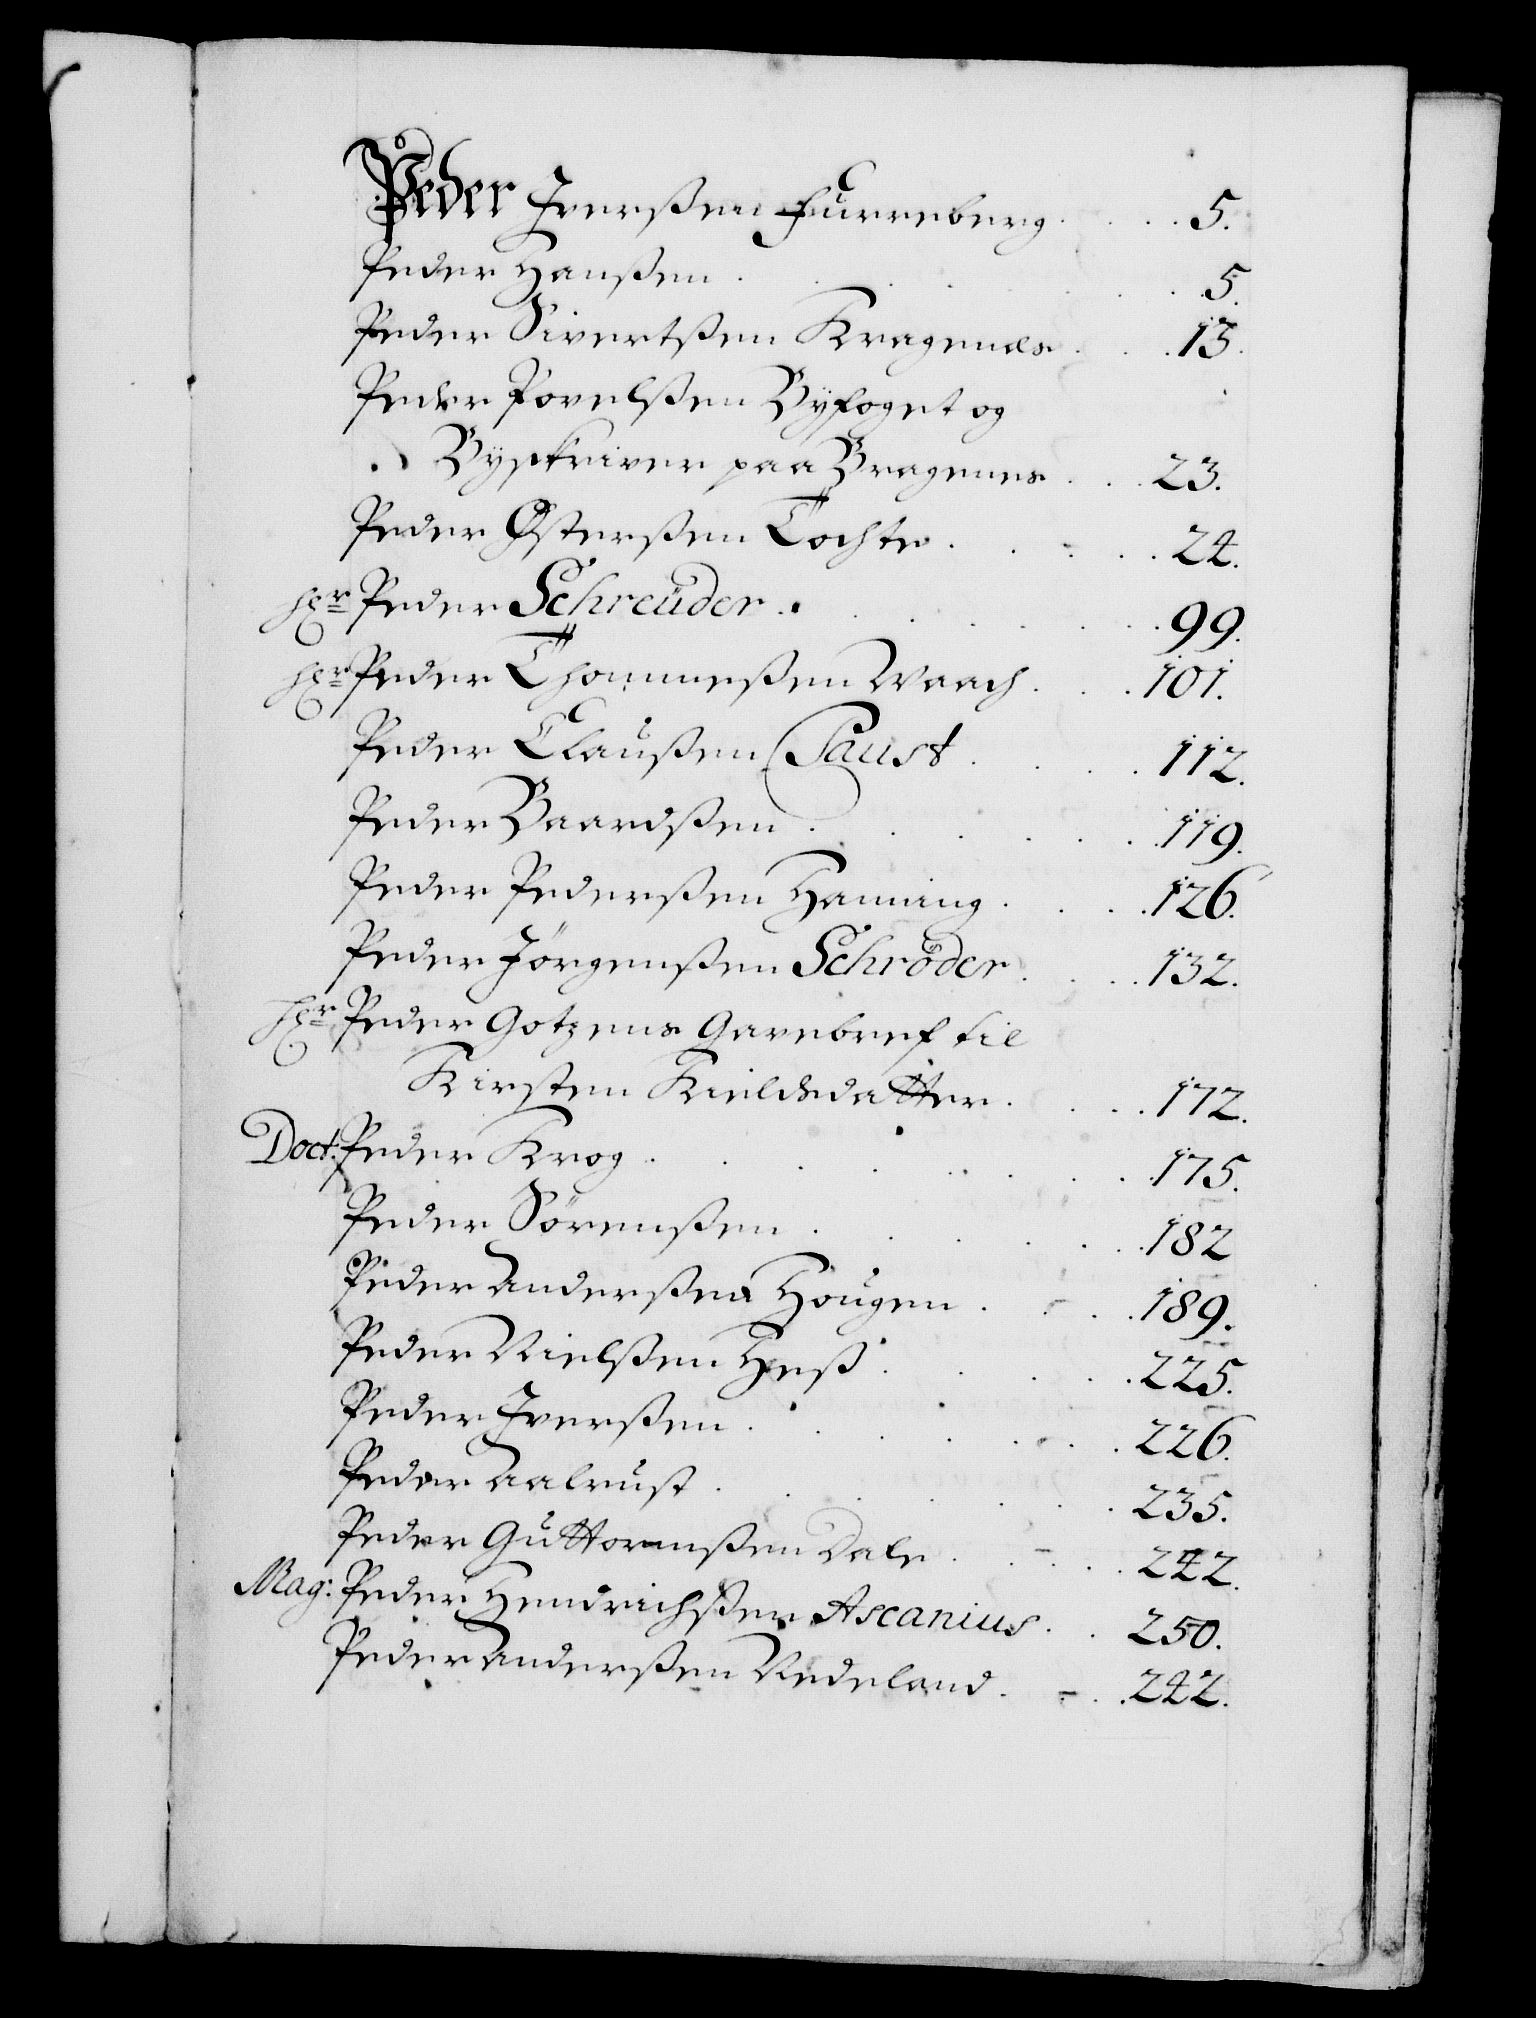 Peder Iverßen Furreberg . . . . 5.
Peder Hanßen . . . . . . 5.
Peder Sivertßen Kragenæs . . . 13.
Peder Povelßen Byfoget og
Byskriver paa Bragernes . . . 23.
Peder Østerßen Tochte . . . . . 24.
Hr Peder Schreüder . . . . . . 99.
Hr Peder Thommeßen Waach . . . 101.
Peder Claußen Paust . . . . 112.
Peder Baardßen . . . . . . 119.
Peder Pederßen Haming . . . . 126.
Peder Jörgenßen Schröder . . . . 132.
Hr Peder Gotzens Gavebref til
Kirsten Kieldsdatter . . . . 172.
Doct: Peder Krog . . . . . . . 175.
Peder Sörenßen . . . . . . 182
Peder Anderßen Hougen . . . . 189.
Peder Nielßen Heß . . . . . 225.
Peder Iverßen . . . . . . 226.
Peder Aalrust . . . . . . 235.
Peder Guttormßen Dale . . . . 242.
Mag: Peder Hendrichßen Ascanius . . 250.
Peder Anderßen Nedeland . . . 242.